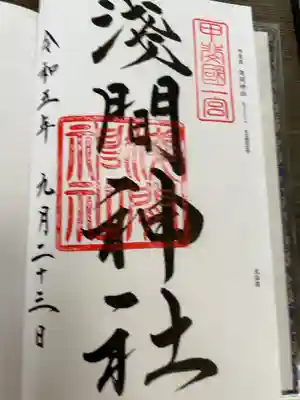 甲斐國一宮
淺間神社
淺間神社
令和五年 九月二十三日